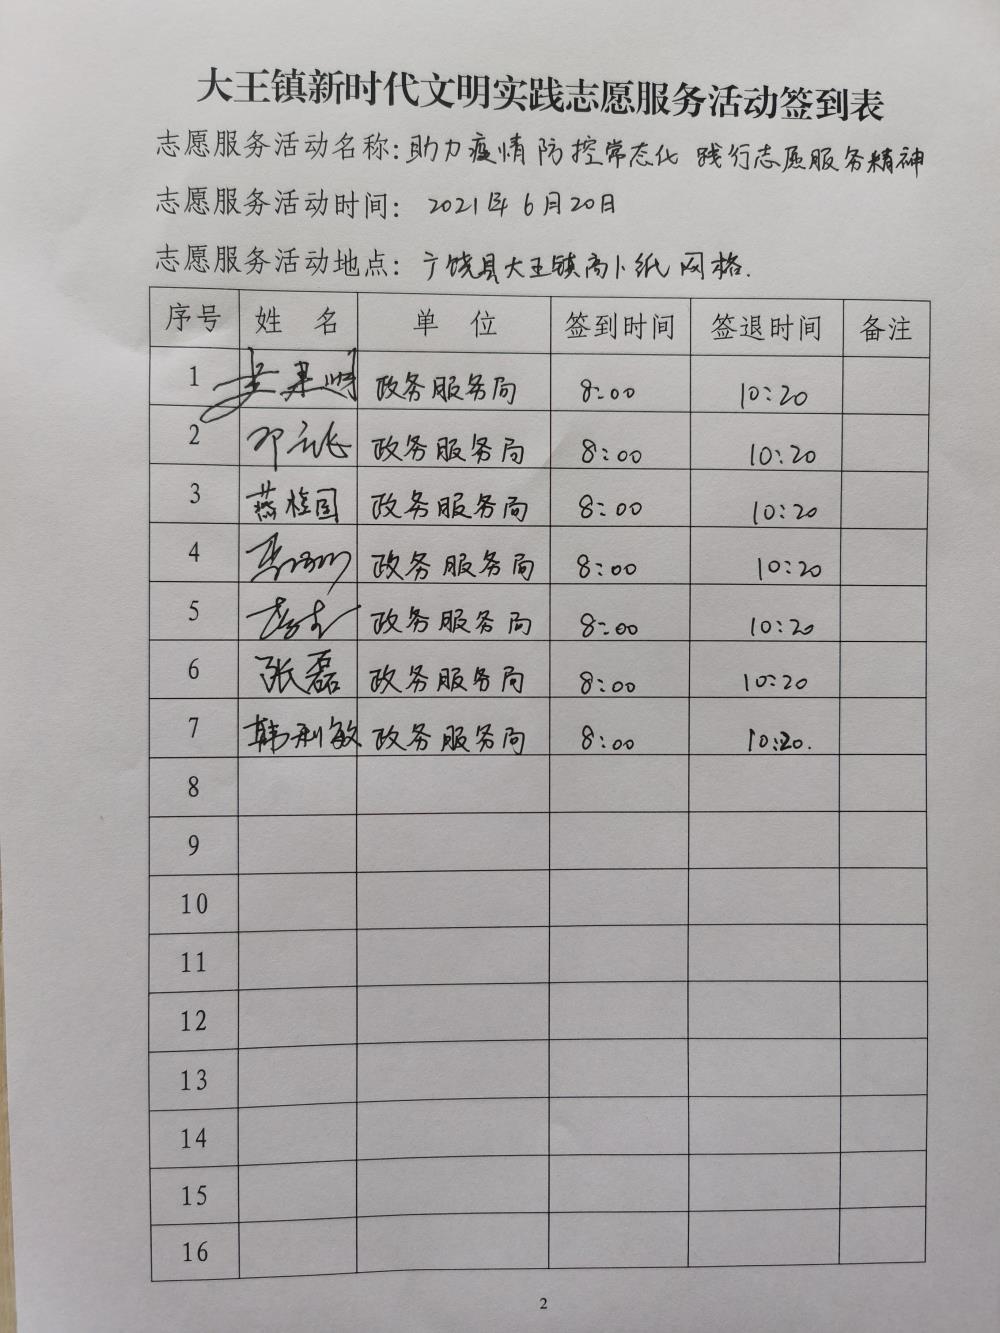 大王镇新时代文明实践志愿服务活动签到表
志愿服务活动名称:助力疫情防控常态化 践行志愿服务精神
志愿服务活动时间: 2021年6月20日
志愿服务活动地点: 广饶县大王镇高卜纸网格.
序号 姓 名 单 位 签到时间 签退时间 备注
1 政务服务局 8:00 10:20
2 政务服务局 8:00 10:20
3 政务服务局 8:00 10:20
4 政务服务局 8:00 10:20
5 政务服务局 8:00 10:20
6 张磊 政务服务局 8:00 10:20
7 韩利敏 政务服务局 8:00 10:20.
8
9
10
11
12
13
14
15
16
2